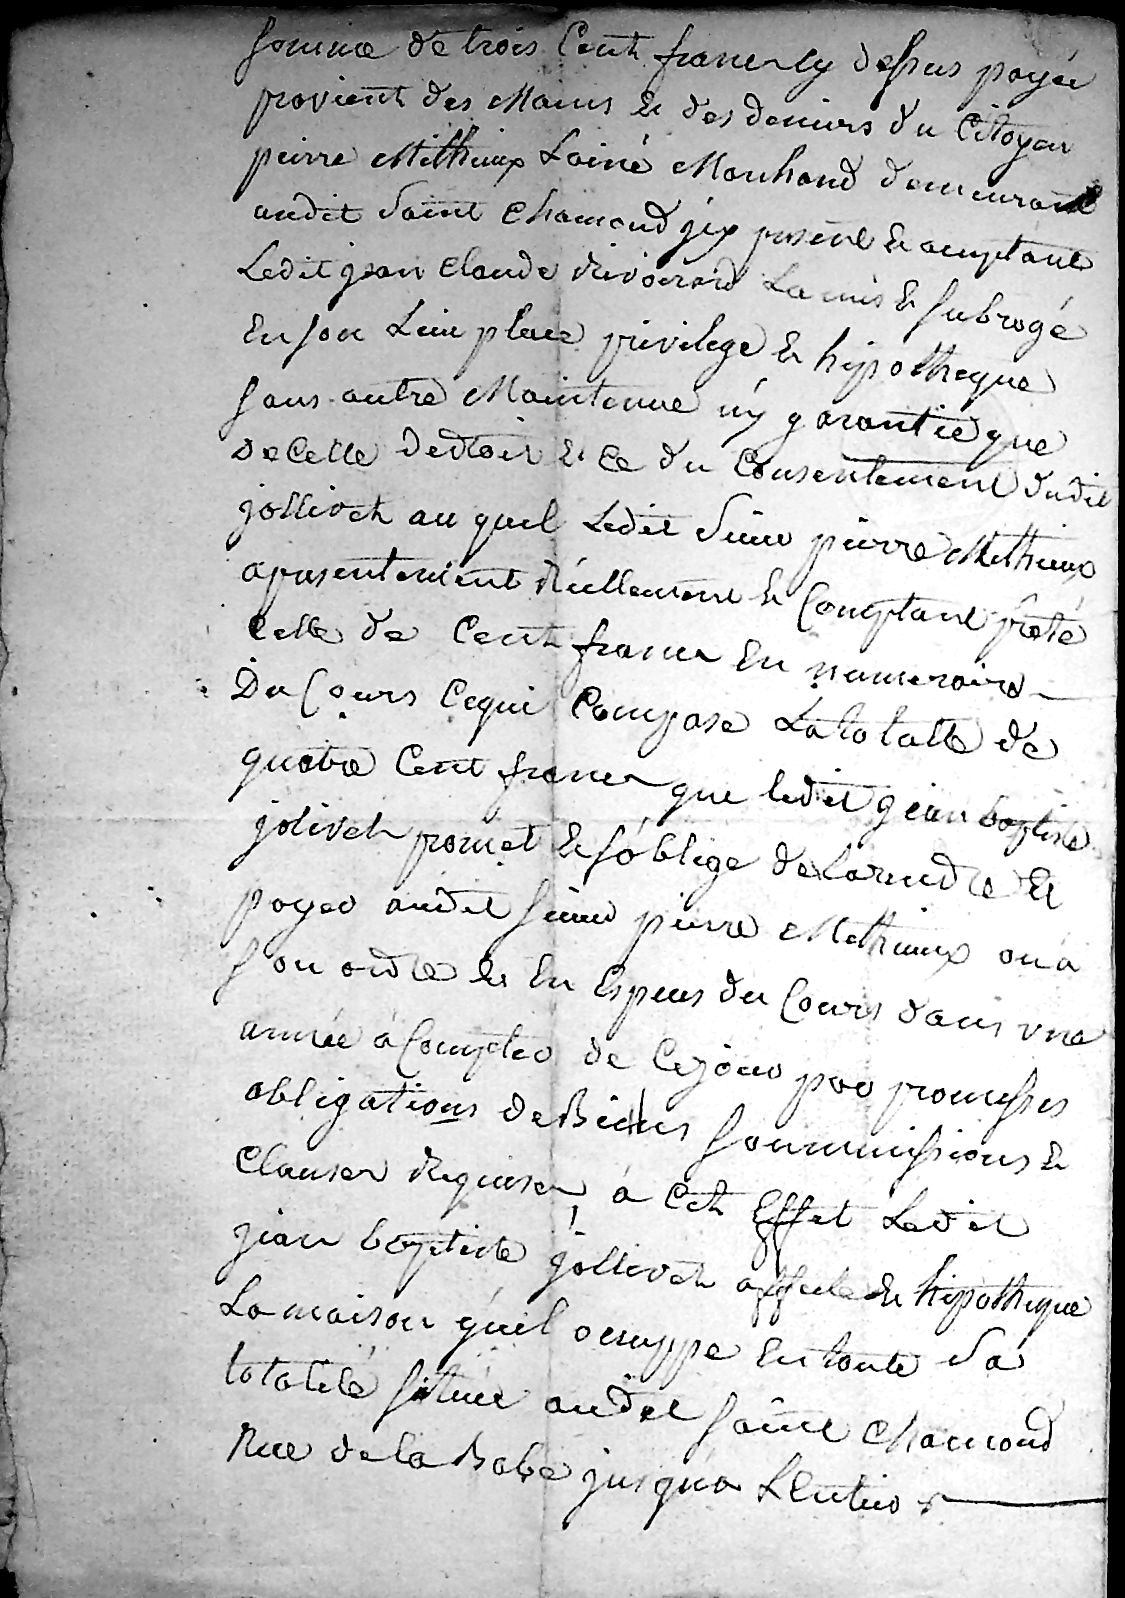 somme de trois Cent francs cy dessus payée
provient des Mains & des deniers du Citoyen
pierre Methieux Lainé Marchand demeurant
audit Saint Chamond icy present & acceptant
Ledit jean Claude Rivoirard La mis & subrogé
En son Lieu place privilege & hipotheque
sans autre Maintenue n'y garantie que
De Celle dedroit & Ce du Consentement dudit
jollivet au quel Ledit Sieur pierre Methieux
apresentement Réellement & Comptant preté
Celle de Cent francs En numeraire
Du Cours Cequi Compose La totalle de
quatre Cent francs que ledit jean baptiste
jolivet promet & s'oblige de La rendre &
payer audit sieur pierre Methieux ou à
son ordre & En Especes du Cours dans une
année à Compter de Cejour par promesses
obligations de Biens soummissions &
Clauses Requises à Cet Effet Ledit
jean baptiste jollivet affecte & hipotheque
La maison qu'il occuppe En toute Sa
totalité située audit saint Chamond
Rue de la jusqua Lentier